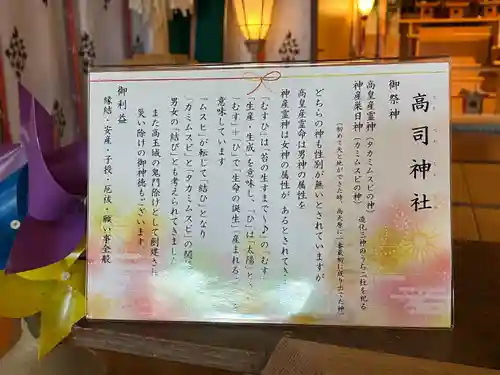 高司神社
御祭神
高皇産霊神(タカミムスビの神)
神産巣日神(カミムスビの神)
造化三神のうち二柱を祀る
(初めて天と地ができた時、高天原に一番最初に成り出でた神)
どちらの神も性別が無いとされていますが
高皇産霊命は男神の属性を
神産霊神は女神の属性が あるとされてき
「むすひ」は「苔の生すまで♪」の「むす」
「生産・生成」を意味し、「ひ」は「太陽」と、
「むす」+「ひ」で「生命の誕生」「産まれる」
意味しています
「ムスヒ」が転じて「結ひ」となり
「カミムスビ」と「タカミムスビ」の関
男女の「結び」とも考えられてきました
また高玉城の鬼門除けとして創建さ
災い除けの御神徳もございます
御利益
縁結・安産・子授・厄祓・願い事全般